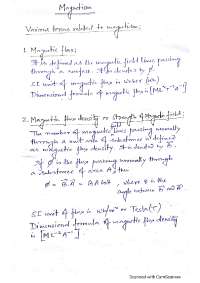 Magnetism
Various terms related to magnetism:
1. Magnetic flux:
It is defined as the magnetic field lines passing
through a surface. It is denoted by φ.
SI unit of magnetic flux is weber (wb)
Dimensional formula of magnetic flux is [ML²T⁻²A⁻¹]
2. Magnetic flux density or strength of magnetic field:
The number of magnetic lines passing normally
through a unit area of substance is defined
as magnetic flux density. It is denoted by B.
If φ is the flux passing normally through
a substance of area A, then
φ = B.A = BA cos θ, where θ is the
angle between B and A.
SI unit of flux is wb/m² or Tesla (T)
Dimensional formula of magnetic flux density
is [MT⁻²A⁻¹]
Scanned with CamScanner